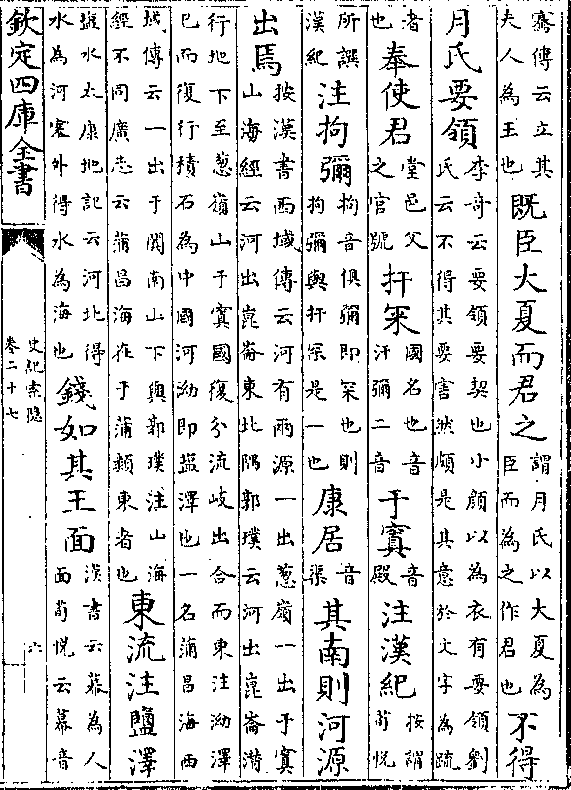 騫傳云立其夫人為王也既臣大夏而君之謂月氏以大夏為臣而為之作君也不得
月氏要領李奇云要領要契也小顔以為衣有要領劉氏云不得其要害然頗是其意於文字為疏
者也奉使君堂邑父之官號扞罙國名也音汗彌二音于窴音殿注漢紀按謂荀悦
所譔漢紀注拘彌拘音俱彌即罙也則拘彌與扞罙是一也康居音渠其南則河源
出焉按漢書西域傳云河有兩源一出葱嶺一出于窴山海經云河出崑崙東北隅郭璞云河出崑崙潜
行地下至葱嶺山于窴國復分流歧出合而東注泑澤已而復行積石為中國河泑即盐澤也一名蒲昌海西
域傳云一出于闐南山下與郭璞注山海經不同廣志云蒲昌海在于蒲類東者也東流注鹽澤
鹽水太康地記云河北得水為河塞外得水為海也錢如其王面漢書云幕為人面荀悦云幕音
欽定四庫全書
史記索隱
卷二十七
六